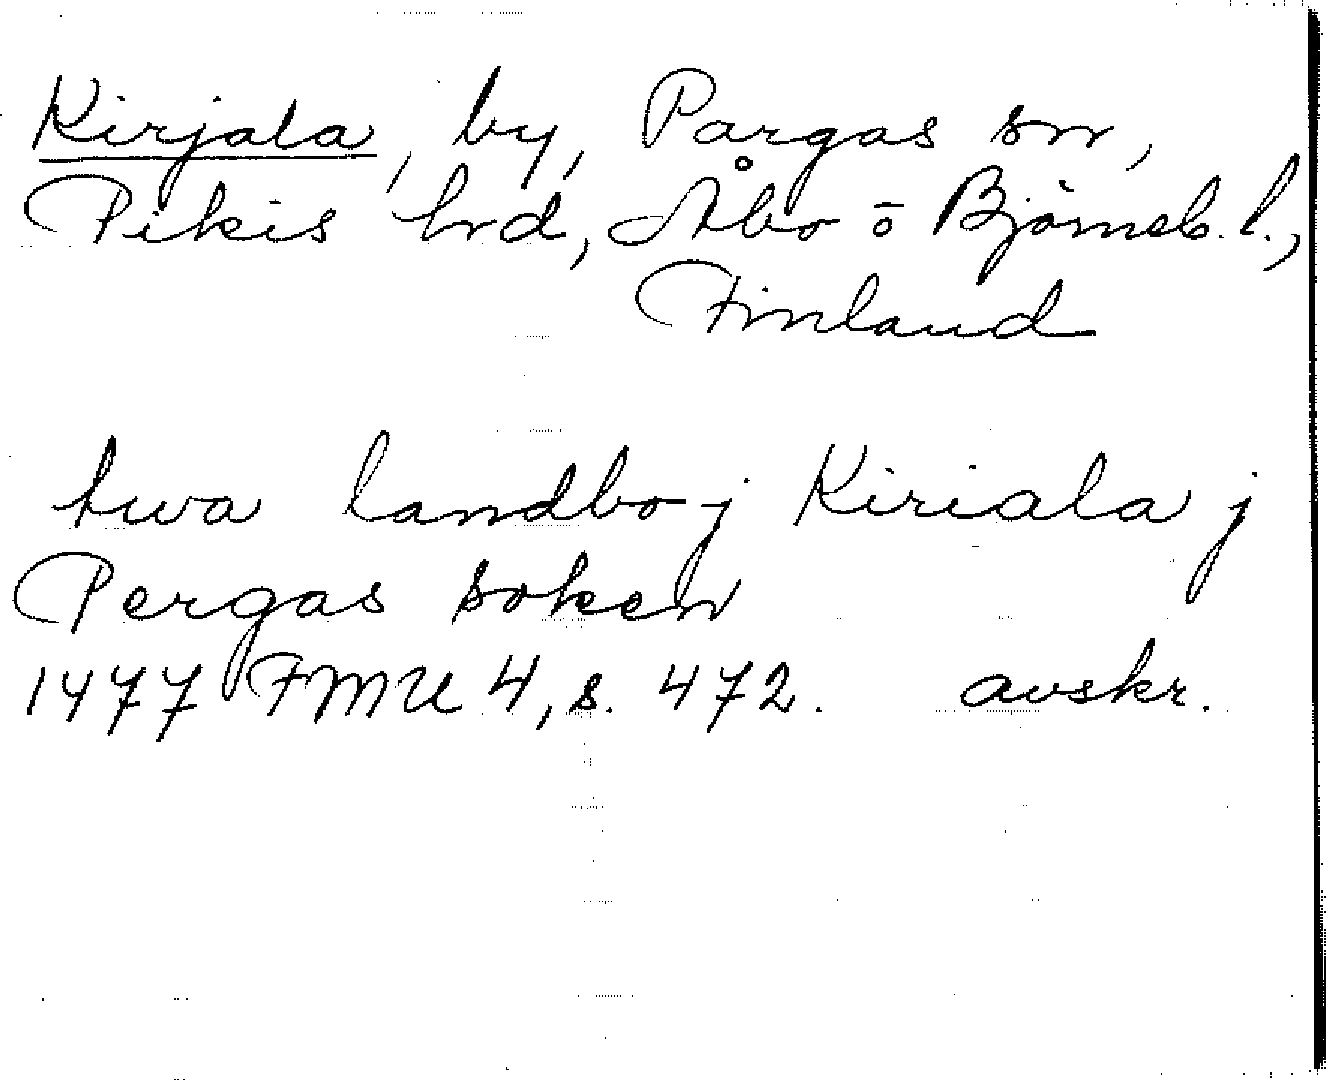 Kirjala, by, Pargas sn,
Pikis hrd, Åbo o Björneb. l.,
Finland
twa landbo j Kiriala j
Pergas soken
1477 FMU 4, s. 472. avskr.